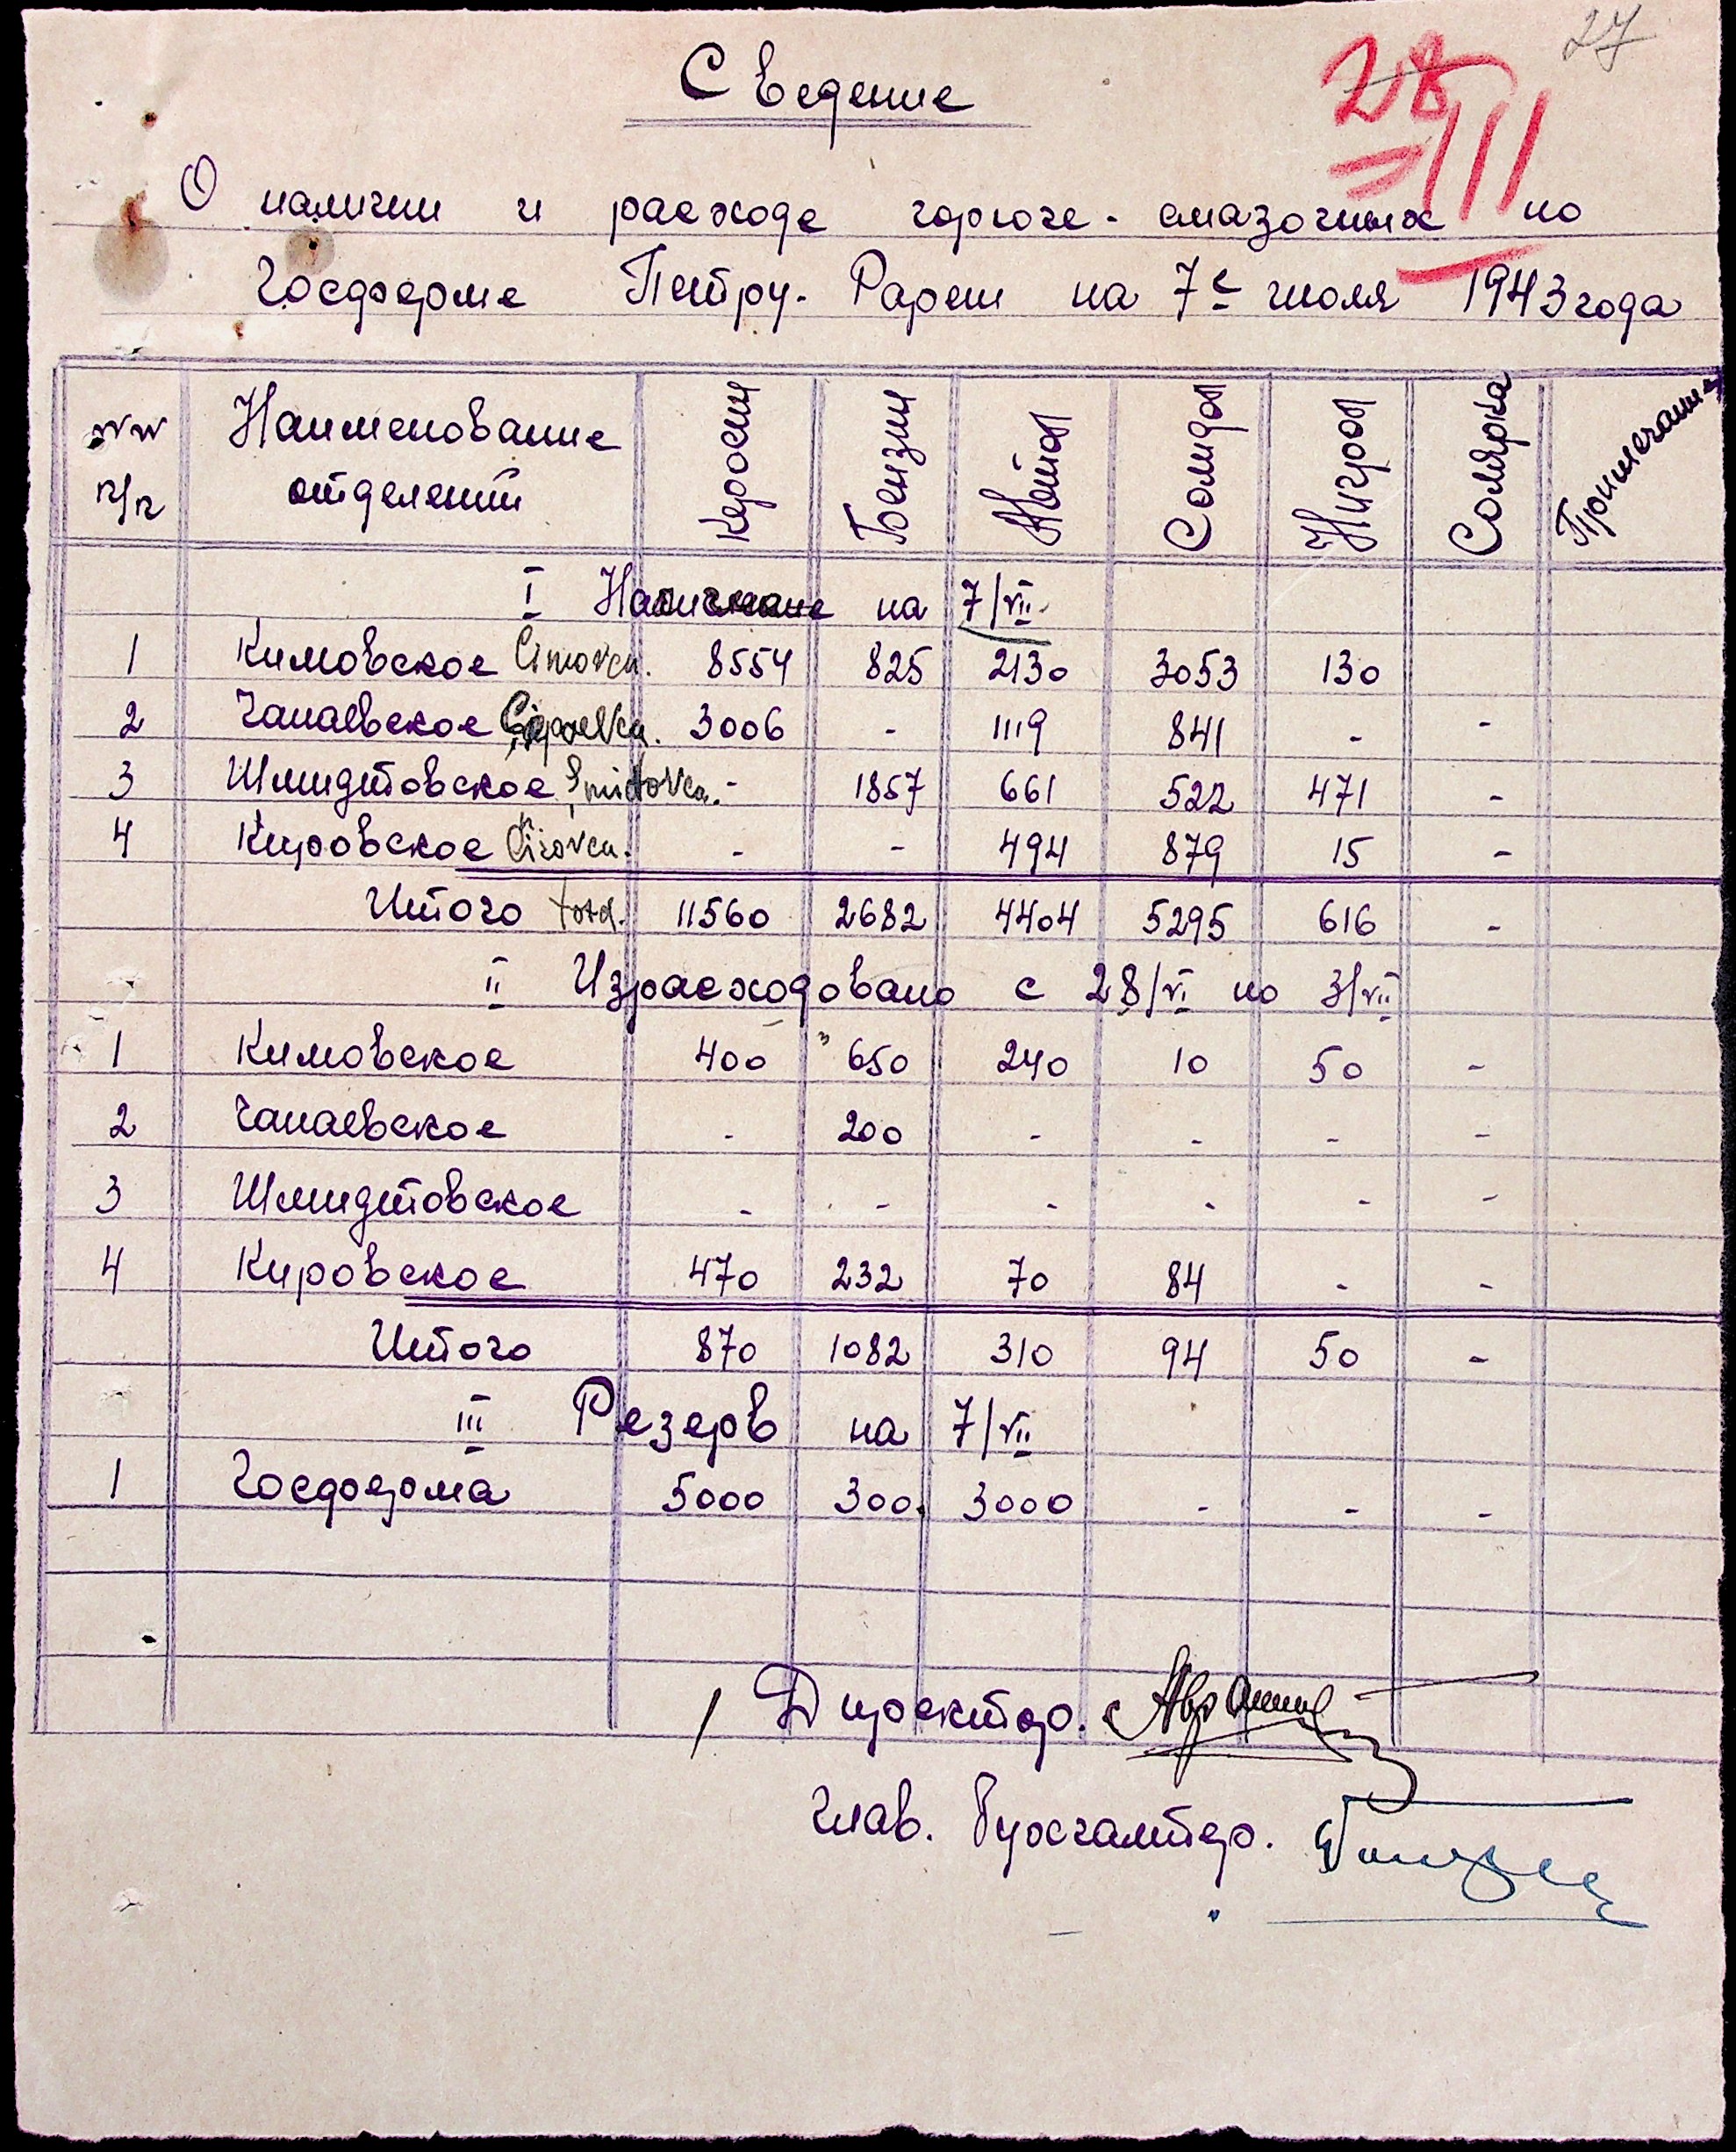 27
28
III
Сведение
О наличии и расходе горюче-смазочных по
Госферме Петру-Рареш на 7е июля 1943 года
№№ п/п Наименование отделений Керосин Бензин Автол Солидол Нигрол Солярка Примечание
I на 7/VII
1 Кимовское Cimovca. 8554 825 2130 3053 130
2 Чапаевское 3006 - 1119 841 - -
3 Шмидтовское Smidtovca. - 1857 661 522 471 -
4 Кировское Cirovca. - - 494 879 15 -
Итого total. 11560 2682 4404 5295 616 -
II Израсходовано с 28/VI по 3/VII
1 Кимовское 400 650 240 10 50 -
2 Чапаевское - 200 - - - -
3 Шмидтовское - - - - - -
4 Кировское 470 232 70 84 - -
Итого 870 1082 310 94 50 -
III Резерв на 7/VII
1 Госферма 5000 300. 3000 - - -
Директор.
Глав. Бухгалтер.